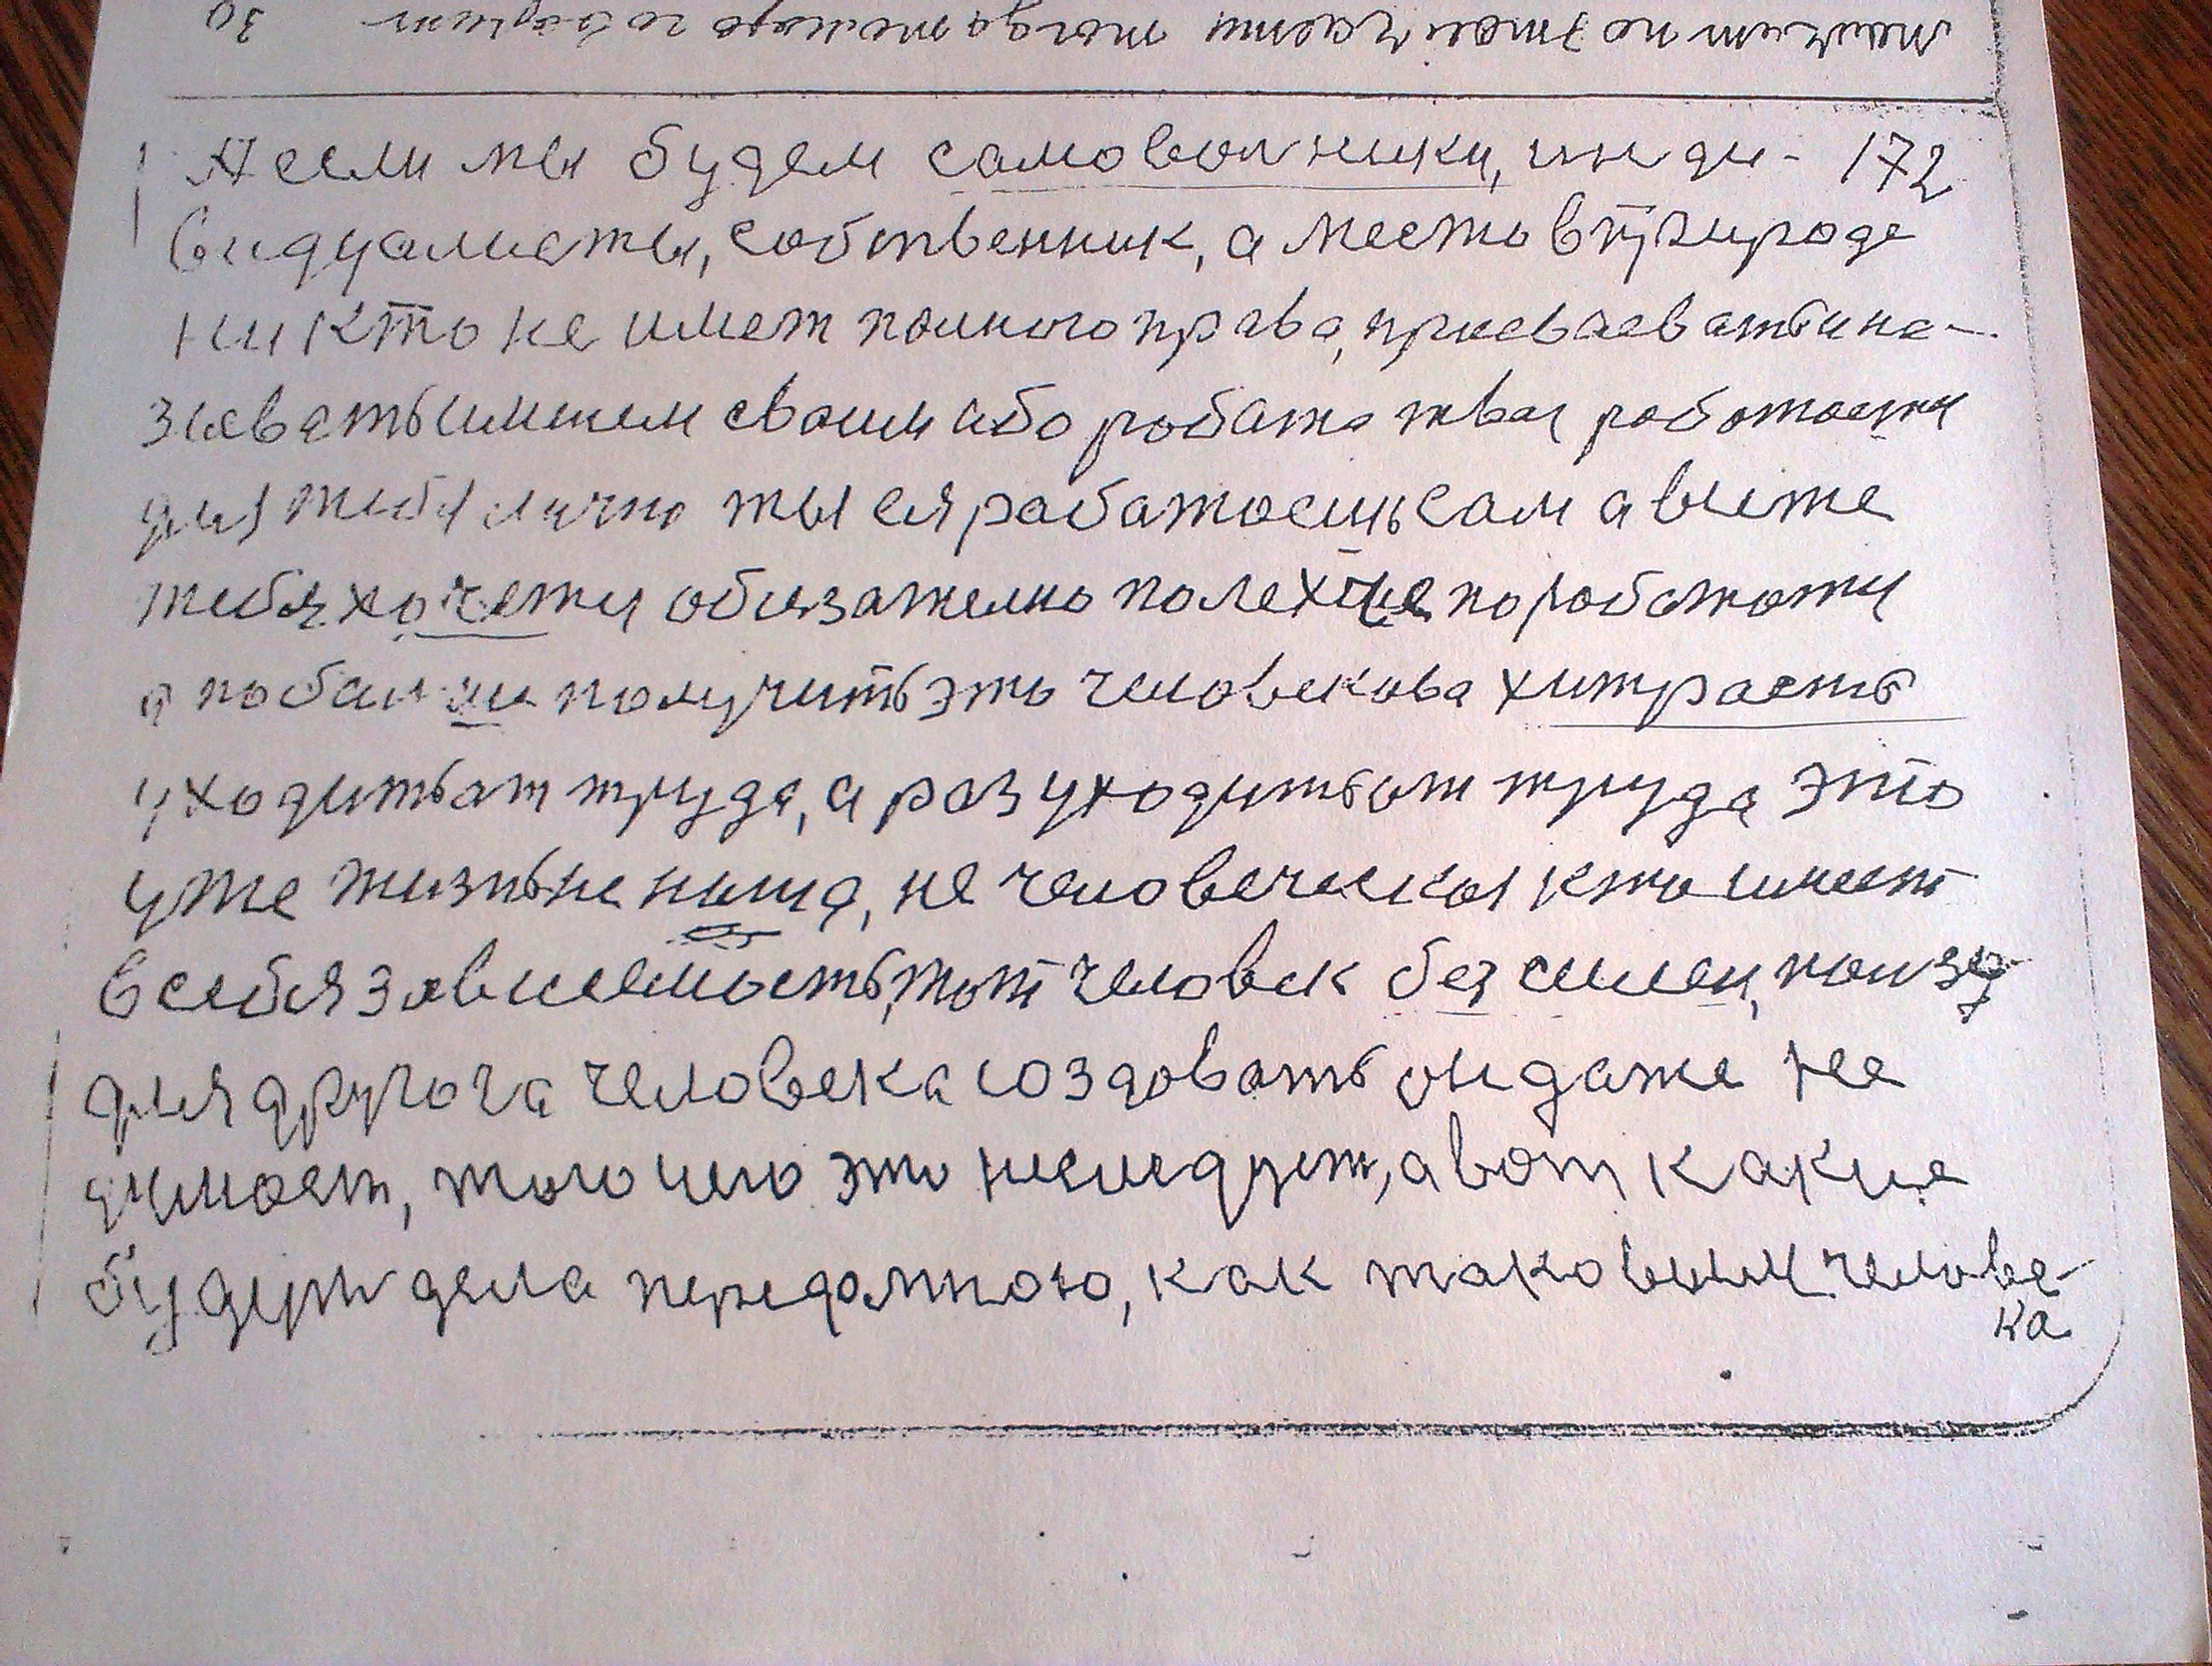 А если мы будем самовольники, инди- 172
видуалисты, собственник, а место в природе
никто не имет полного права, присваевать и на-
зывать иминем своим або робата твая роботаети
для тибя лично ты ея работаешь сам а висте
тибя хочети обизателно полехче поработоти
а побални получить это человекова хитрасть
уходить от труда, а раз уходить от труда это
уже жизнь не наша, не человеческая кто имеет
в сибя зависемость, тот человек без силен, ползу
для другога человека создовать он даже не
думает, того чего это не следует, а вот какие
будут дела передомною, как таковым челове-
ка